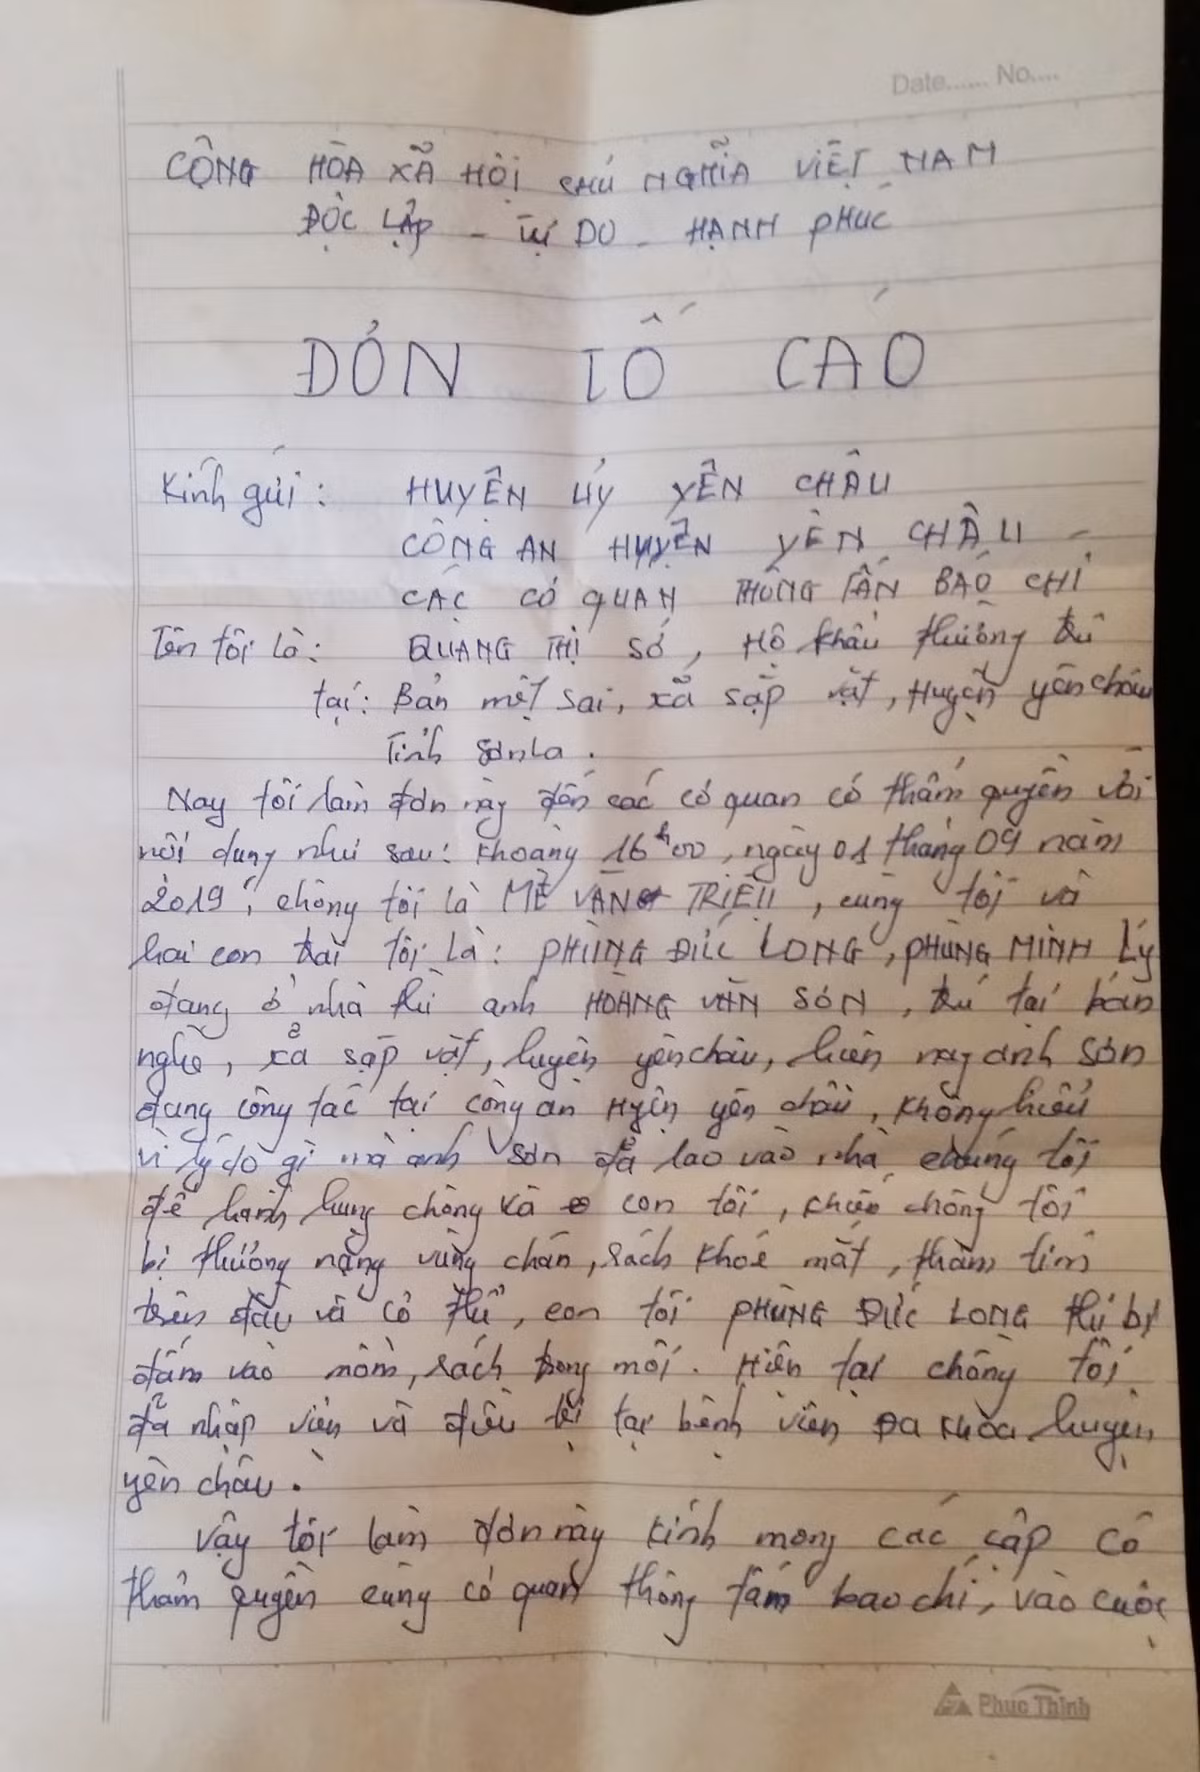 Date...... No....
CỘNG HÒA XÃ HỘI CHỦ NGHĨA VIỆT NAM
ĐỘC LẬP - TỰ DO - HẠNH PHÚC
ĐƠN TỐ CÁO
Kính gửi: HUYỆN ỦY YÊN CHÂU
CÔNG AN HUYỆN YÊN CHÂU
CÁC CƠ QUAN THÔNG TẤN BÁO CHÍ
Tên tôi là: QUANG THỊ SỚ, Hộ khẩu thường trú
tại: Bản mệt sai, xã sặp vạt, Huyện yên châu
Tỉnh sơn la.
Nay tôi làm đơn này đến các cơ quan có thẩm quyền với
nội dung như sau: Khoảng 16h00, ngày 01 tháng 09 năm
2019, chồng tôi là MÈ VĂN TRIỆU, cùng tôi và
hai con trai tôi là: PHÙNG ĐỨC LONG, PHÙNG MINH LÝ
đang ở nhà thì anh HOÀNG VĂN SƠN, trú tại bản
nghè, xã sặp vạt, huyện yên châu, hiện nay anh Sơn
đang công tác tại công an Hyện yên châu, không hiểu
vì lý do gì mà anh Sơn đã lao vào nhà chúng tôi
để hành hung chồng và con tôi, khiến chồng tôi
bị thương nặng vùng chán, rách khoé mắt, thâm tím
trên đầu và cơ thể, con tôi PHÙNG ĐỨC LONG thì bị
đấm vào mồm, rách trong môi. Hiện tại chồng tôi
đã nhập viện và điều trị tại bệnh viện Đa khoa huyện
yên châu.
Vậy tôi làm đơn này kính mong các cấp có
thẩm quyền cùng cơ quan thông tấn báo chí, vào cuộc
Phuc Thinh